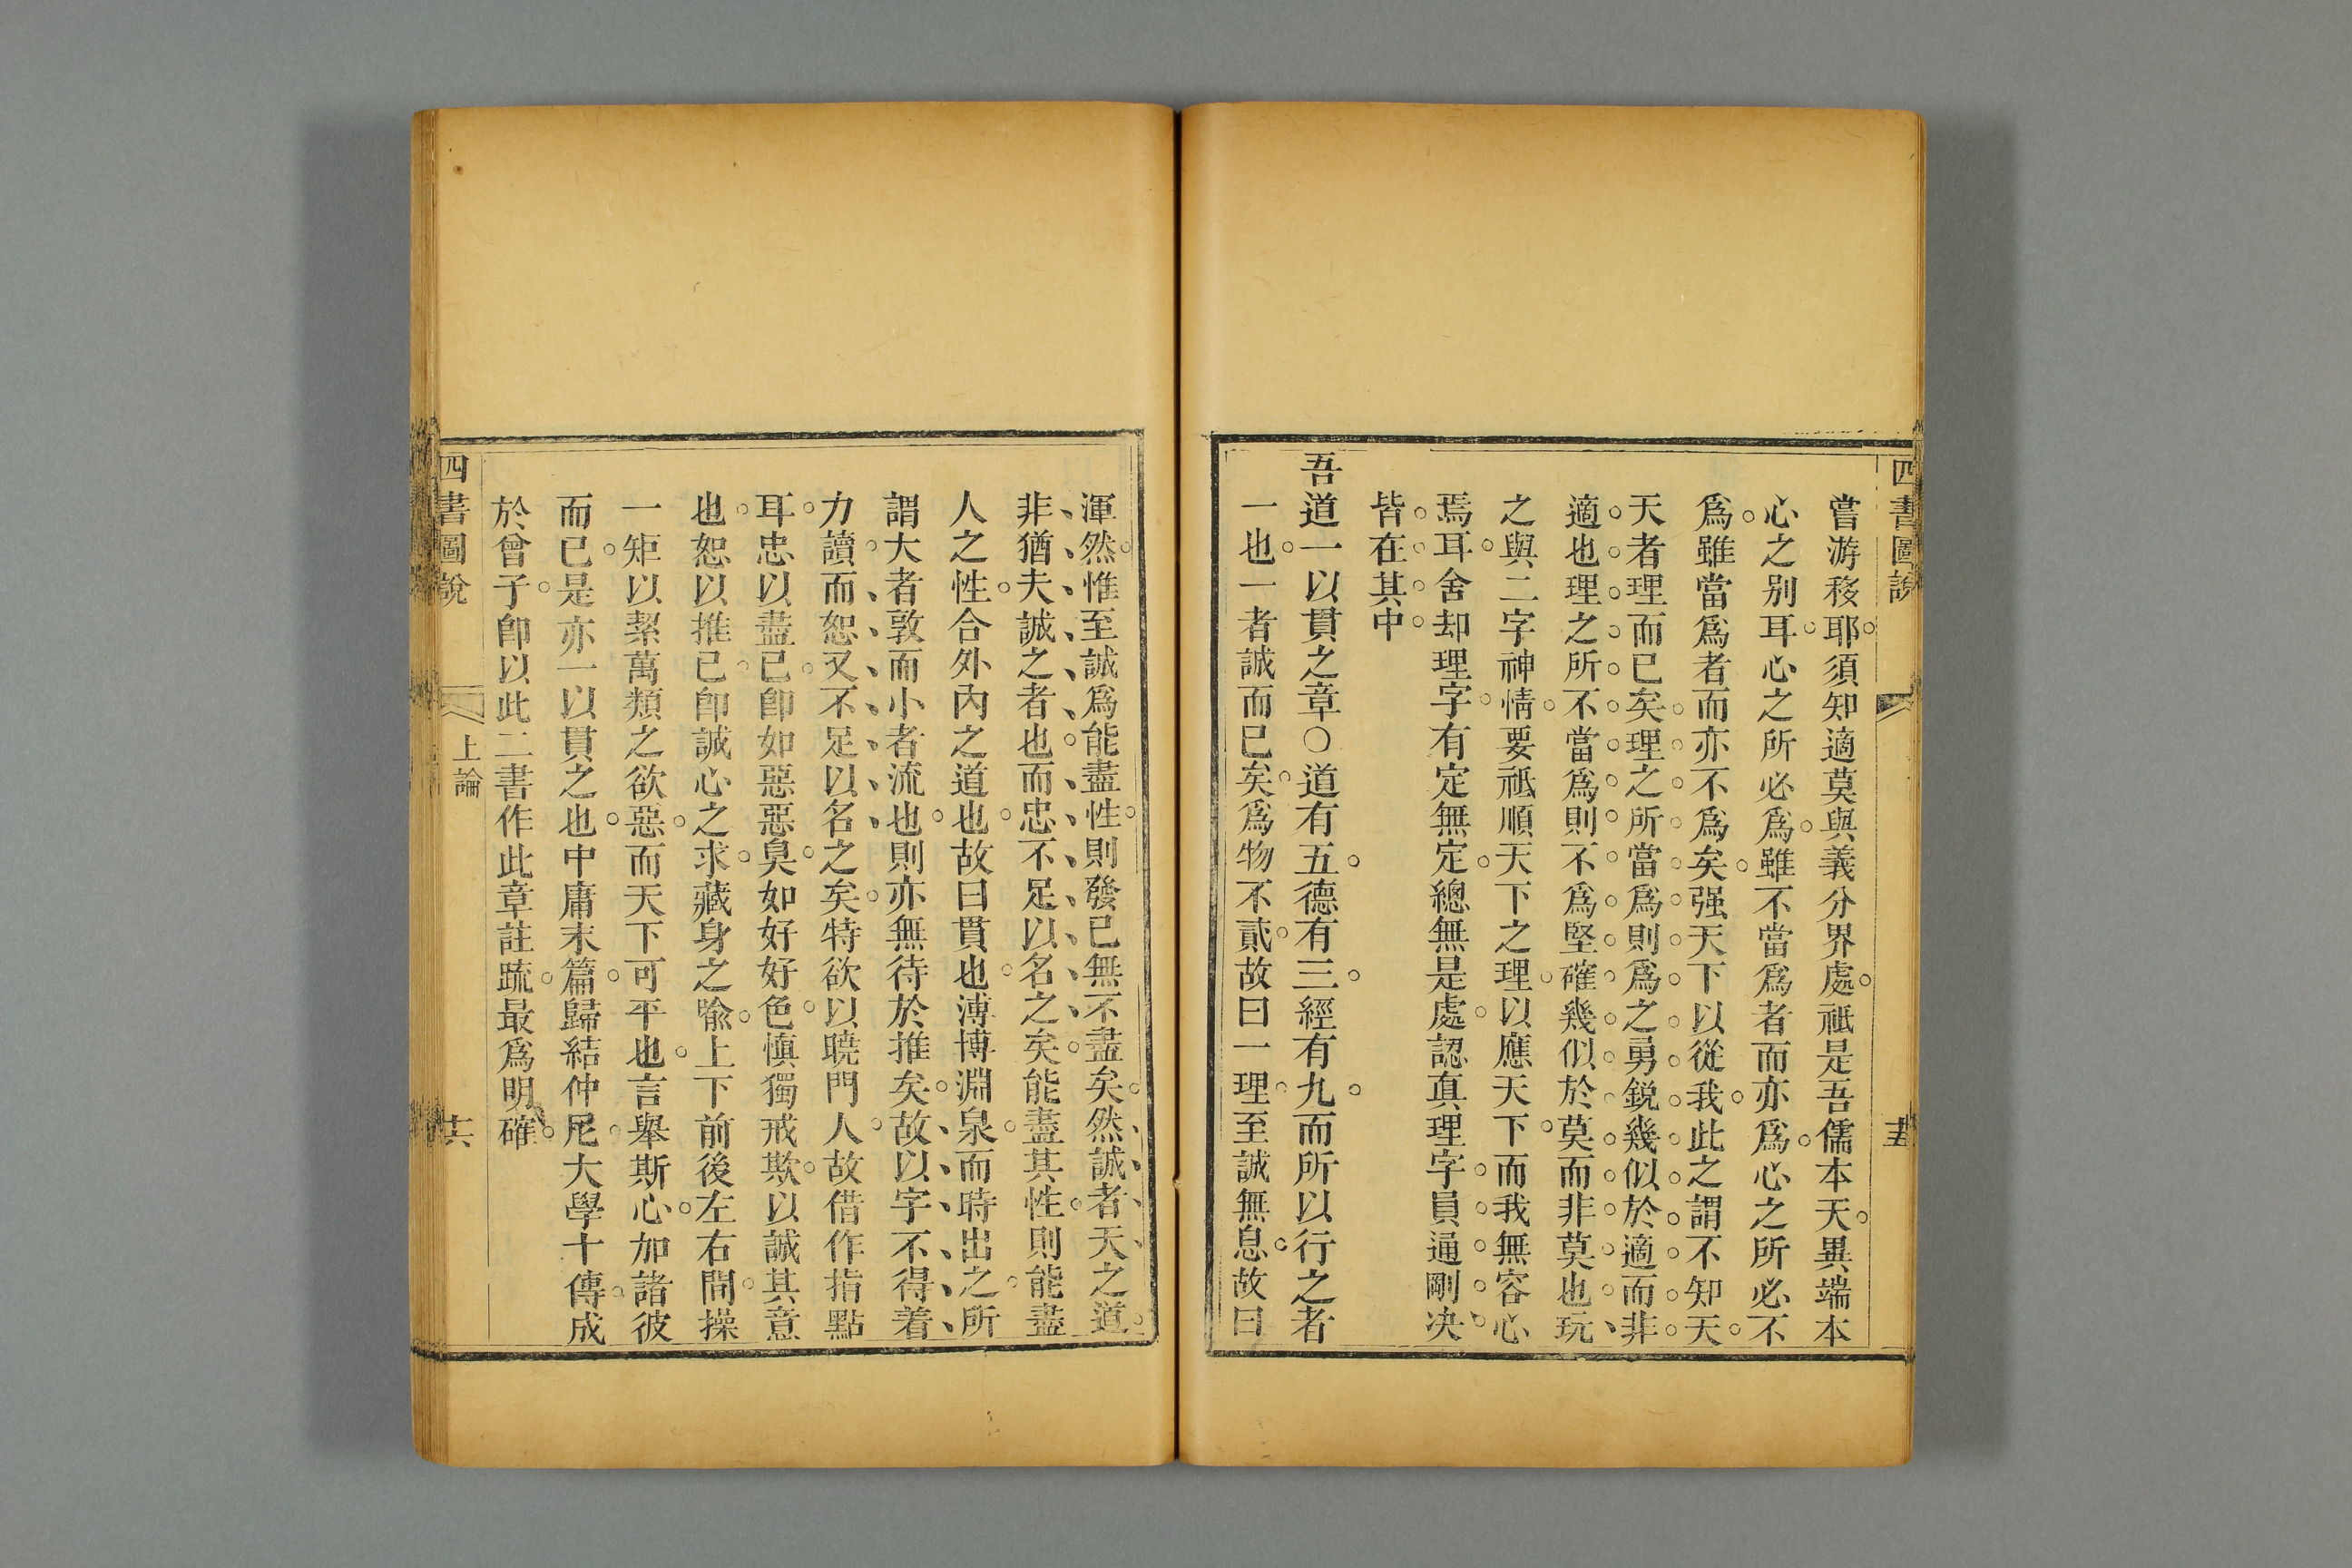 四書圖說
嘗游移耶須知適莫與義分界處祗是吾儒本天異端本
心之别耳心之所必爲雖不當爲者而亦爲心之所必不
爲雖當爲者而亦不爲矣强天下以從我此之謂不知天
天者理而已矣理之所當爲則爲之勇鋭幾似於適而非
適也理之所不當爲則不爲堅確幾似於莫而非莫也玩
之與二字神情要祗順天下之理以應天下而我無容心
焉耳舍却理字有定無定總無是處認真理字員通剛决
皆在其中
吾道一以貫之章○道有五德有三經有九而所以行之者
一也一者誠而已矣爲物不貳故曰一理至誠無息故曰
渾然惟至誠爲能盡性則發已無不盡矣然誠者天之道
非猶夫誠之者也而忠不足以名之矣能盡其性則能盡
人之性合外內之道也故曰貫也溥博淵泉而時出之所
謂大者敦而小者流也則亦無待於推矣故以字不得着
力讀而恕又不足以名之矣特欲以曉門人故借作指點
耳忠以盡已卽如惡惡臭如好好色慎獨戒欺以誠其意
也恕以推已卽誠心之求藏身之喻上下前後左右間操
一矩以絜萬類之欲惡而天下可平也言舉斯心加諸彼
而已是亦一以貫之也中庸末篇歸結仲尼大學十傳成
於曾子卽以此二書作此章註疏最爲明確
四書圖說
上論
十六